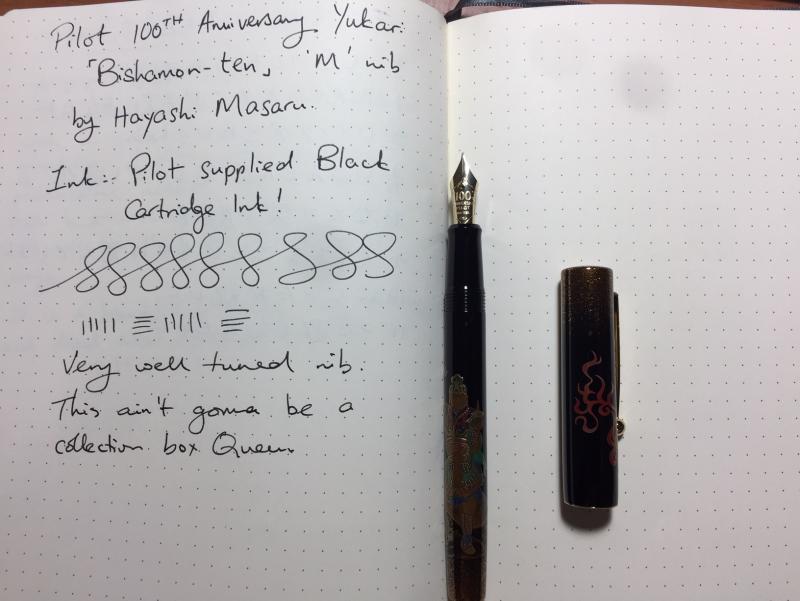 Pilot 100TH Anniversary Yukari
「Bishamon-ten」 'M' nib
by Hayashi Masaru.
Ink:- Pilot supplied Black
Cartridge Ink!
Very well tuned nib.
This ain't gonna be a
collection box Queen.
100